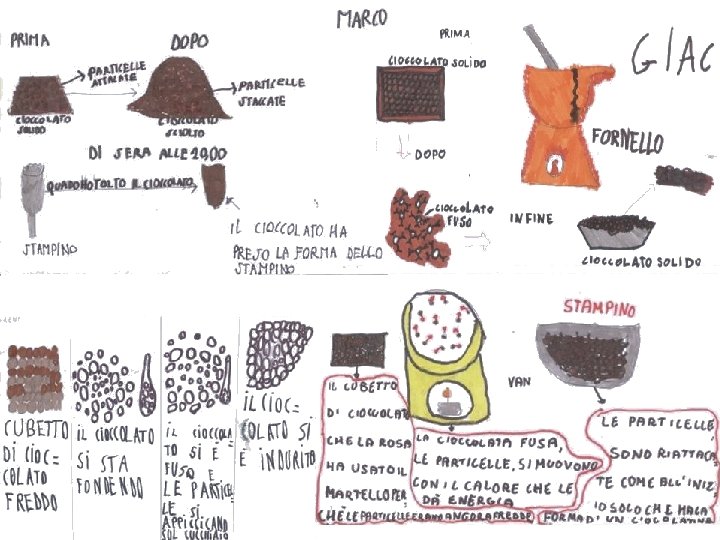 PRIMA
DOPO
PARTICELLE
ATTACCATE
PARTICELLE
STACCATE
CIOCCOLATO
SOLIDO
CIOCCOLATO
SCIOLTO
DI SERA ALLE 19.00
QUADO HO TOLTO IL CIOCCOLATO
STAMPINO
IL CIOCCOLATO HA
PRESO LA FORMA DELLO
STAMPINO
MARCO
PRIMA
CIOCCOLATO SOLIDO
DOPO
CIOCCOLATO
FUSO
GIAC
FORNELLO
INFINE
CIOCCOLATO SOLIDO
CUBETTO
DI CIOC=
COLATO
FREDDO
IL CIOCCOLATO
SI STA
FONDENDO
IL CIOCCOLA
TO SI È
FUSO E
LE PARTICEL
LE SI
APPICCICANO
SUL CUCCHIAIO
IL CIOC=
COLATO SI
È INDURITO
IL CUBETTO
DI CIOCCOLATO
CHE LA ROSA
HA USATO IL
MARTELLO PER=
CHÈ LE PARTICELLE ERANO ANCORA FREDDE
LA CIOCCOLATA FUSA,
LE PARTICELLE, SI MUOVONO
CON IL CALORE CHE LE
DÀ ENERGIA
VAN
STAMPINO
LE PARTICELLE
SONO RIATTACA
TE COME ALL'INIZ
IO SOLO CHE HA LA
FORMA DI UN CIOCOLATINO